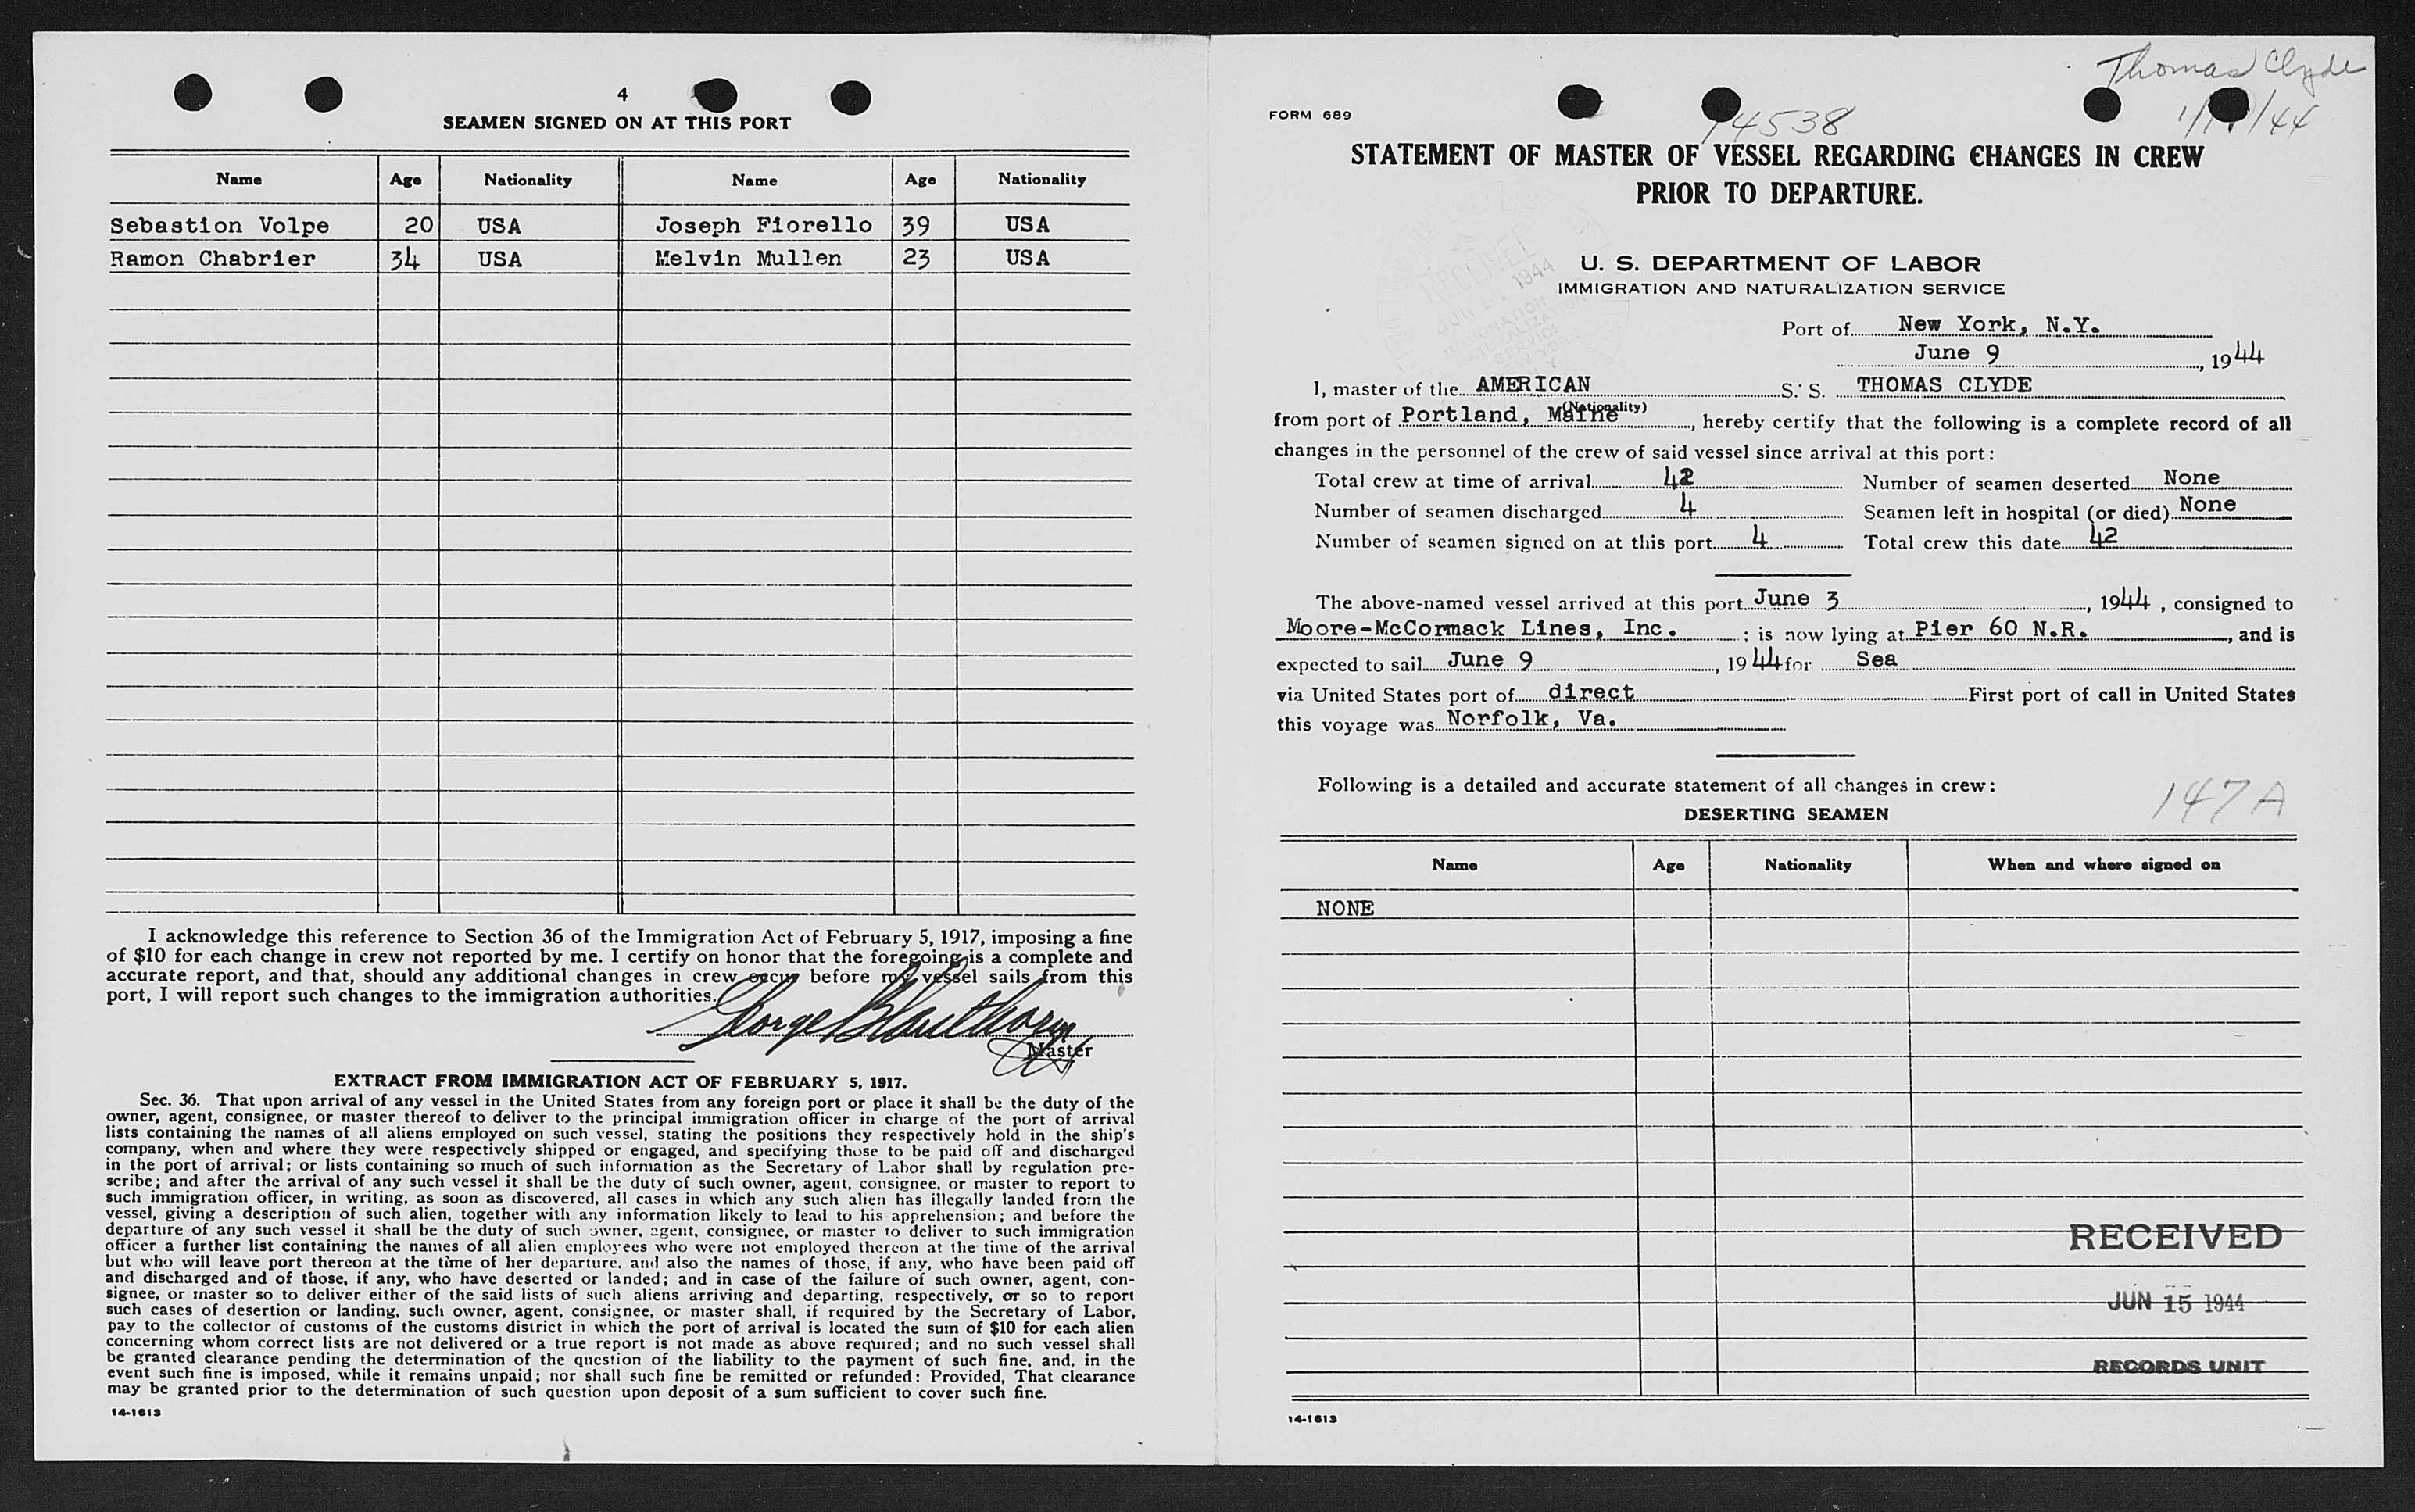 4
SEAMEN SIGNED ON AT THIS PORT
Name Age Nationality Name Age Nationality
Sebastion Volpe 20 USA Joseph Fiorello 39 USA
Ramon Chabrier 34 USA Melvin Mullen 23 USA
I acknowledge this reference to Section 36 of the Immigration Act of February 5, 1917, imposing a fine
of $10 for each change in crew not reported by me. I certify on honor that the foregoing is a complete and
accurate report, and that, should any additional changes in crew occur before my vessel sails from this
port, I will report such changes to the immigration authorities.
Master
EXTRACT FROM IMMIGRATION ACT OF FEBRUARY 5, 1917.
Sec. 36. That upon arrival of any vessel in the United States from any foreign port or place it shall be the duty of the
owner, agent, consignee, or master thereof to deliver to the principal immigration officer in charge of the port of arrival
lists containing the names of all aliens employed on such vessel, stating the positions they respectively hold in the ship's
company, when and where they were respectively shipped or engaged, and specifying those to be paid off and discharged
in the port of arrival; or lists containing so much of such information as the Secretary of Labor shall by regulation pre-
scribe; and after the arrival of any such vessel it shall be the duty of such owner, agent, consignee, or master to report to
such immigration officer, in writing, as soon as discovered, all cases in which any such alien has illegally landed from the
vessel, giving a description of such alien, together with any information likely to lead to his apprehension; and before the
departure of any such vessel it shall be the duty of such owner, agent, consignee, or master to deliver to such immigration
officer a further list containing the names of all alien employees who were not employed thereon at the time of the arrival
but who will leave port thereon at the time of her departure, and also the names of those, if any, who have been paid off
and discharged and of those, if any, who have deserted or landed; and in case of the failure of such owner, agent, con-
signee, or master so to deliver either of the said lists of such aliens arriving and departing, respectively, or so to report
such cases of desertion or landing, such owner, agent, consignee, or master shall, if required by the Secretary of Labor,
pay to the collector of customs of the customs district in which the port of arrival is located the sum of $10 for each alien
concerning whom correct lists are not delivered or a true report is not made as above required; and no such vessel shall
be granted clearance pending the determination of the question of the liability to the payment of such fine, and, in the
event such fine is imposed, while it remains unpaid; nor shall such fine be remitted or refunded: Provided, That clearance
may be granted prior to the determination of such question upon deposit of a sum sufficient to cover such fine.
14-1613
Thomas Clyde
FORM 689
14538
STATEMENT OF MASTER OF VESSEL REGARDING CHANGES IN CREW
PRIOR TO DEPARTURE.
U. S. DEPARTMENT OF LABOR
IMMIGRATION AND NATURALIZATION SERVICE
Port of New York, N.Y.
June 9, 1944
I, master of the AMERICAN S. S. THOMAS CLYDE
(Nationality)
from port of Portland, Maine, hereby certify that the following is a complete record of all
changes in the personnel of the crew of said vessel since arrival at this port:
Total crew at time of arrival 42 Number of seamen deserted None
Number of seamen discharged 4 Seamen left in hospital (or died) None
Number of seamen signed on at this port 4 Total crew this date 42
The above-named vessel arrived at this port June 3, 1944, consigned to
Moore-McCormack Lines, Inc.; is now lying at Pier 60 N.R., and is
expected to sail June 9, 1944 for Sea
via United States port of direct First port of call in United States
this voyage was Norfolk, Va.
Following is a detailed and accurate statement of all changes in crew:
147 A
DESERTING SEAMEN
Name Age Nationality When and where signed on
NONE
RECEIVED
JUN 15 1944
RECORDS UNIT
14-1613